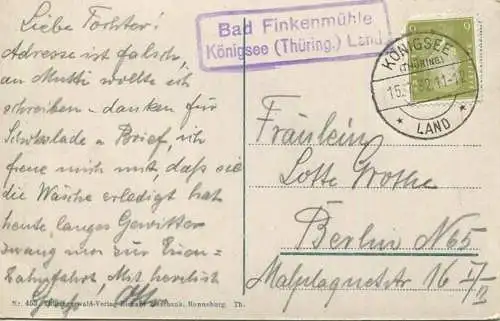 Liebe Tochter!
Adresse ist falsch,
an Mutti wollte ich
schreiben – danken für
Schokolade u Brief, ich
freue mich mit, daß sie
die Wäsche erledigt hat
heute, langes Gewitter
zwang uns zur
fahrt! Mit herzlich
Bad Finkenmühle
Königsee (Thüring.) Land
KÖNIGSEE
(THÜRING)
11-12
LAND
Fräulein
Lotte Grothe
Berlin N65
Malplaquetstr 16
Thüringerwald-Verlag Ronneburg. Th.